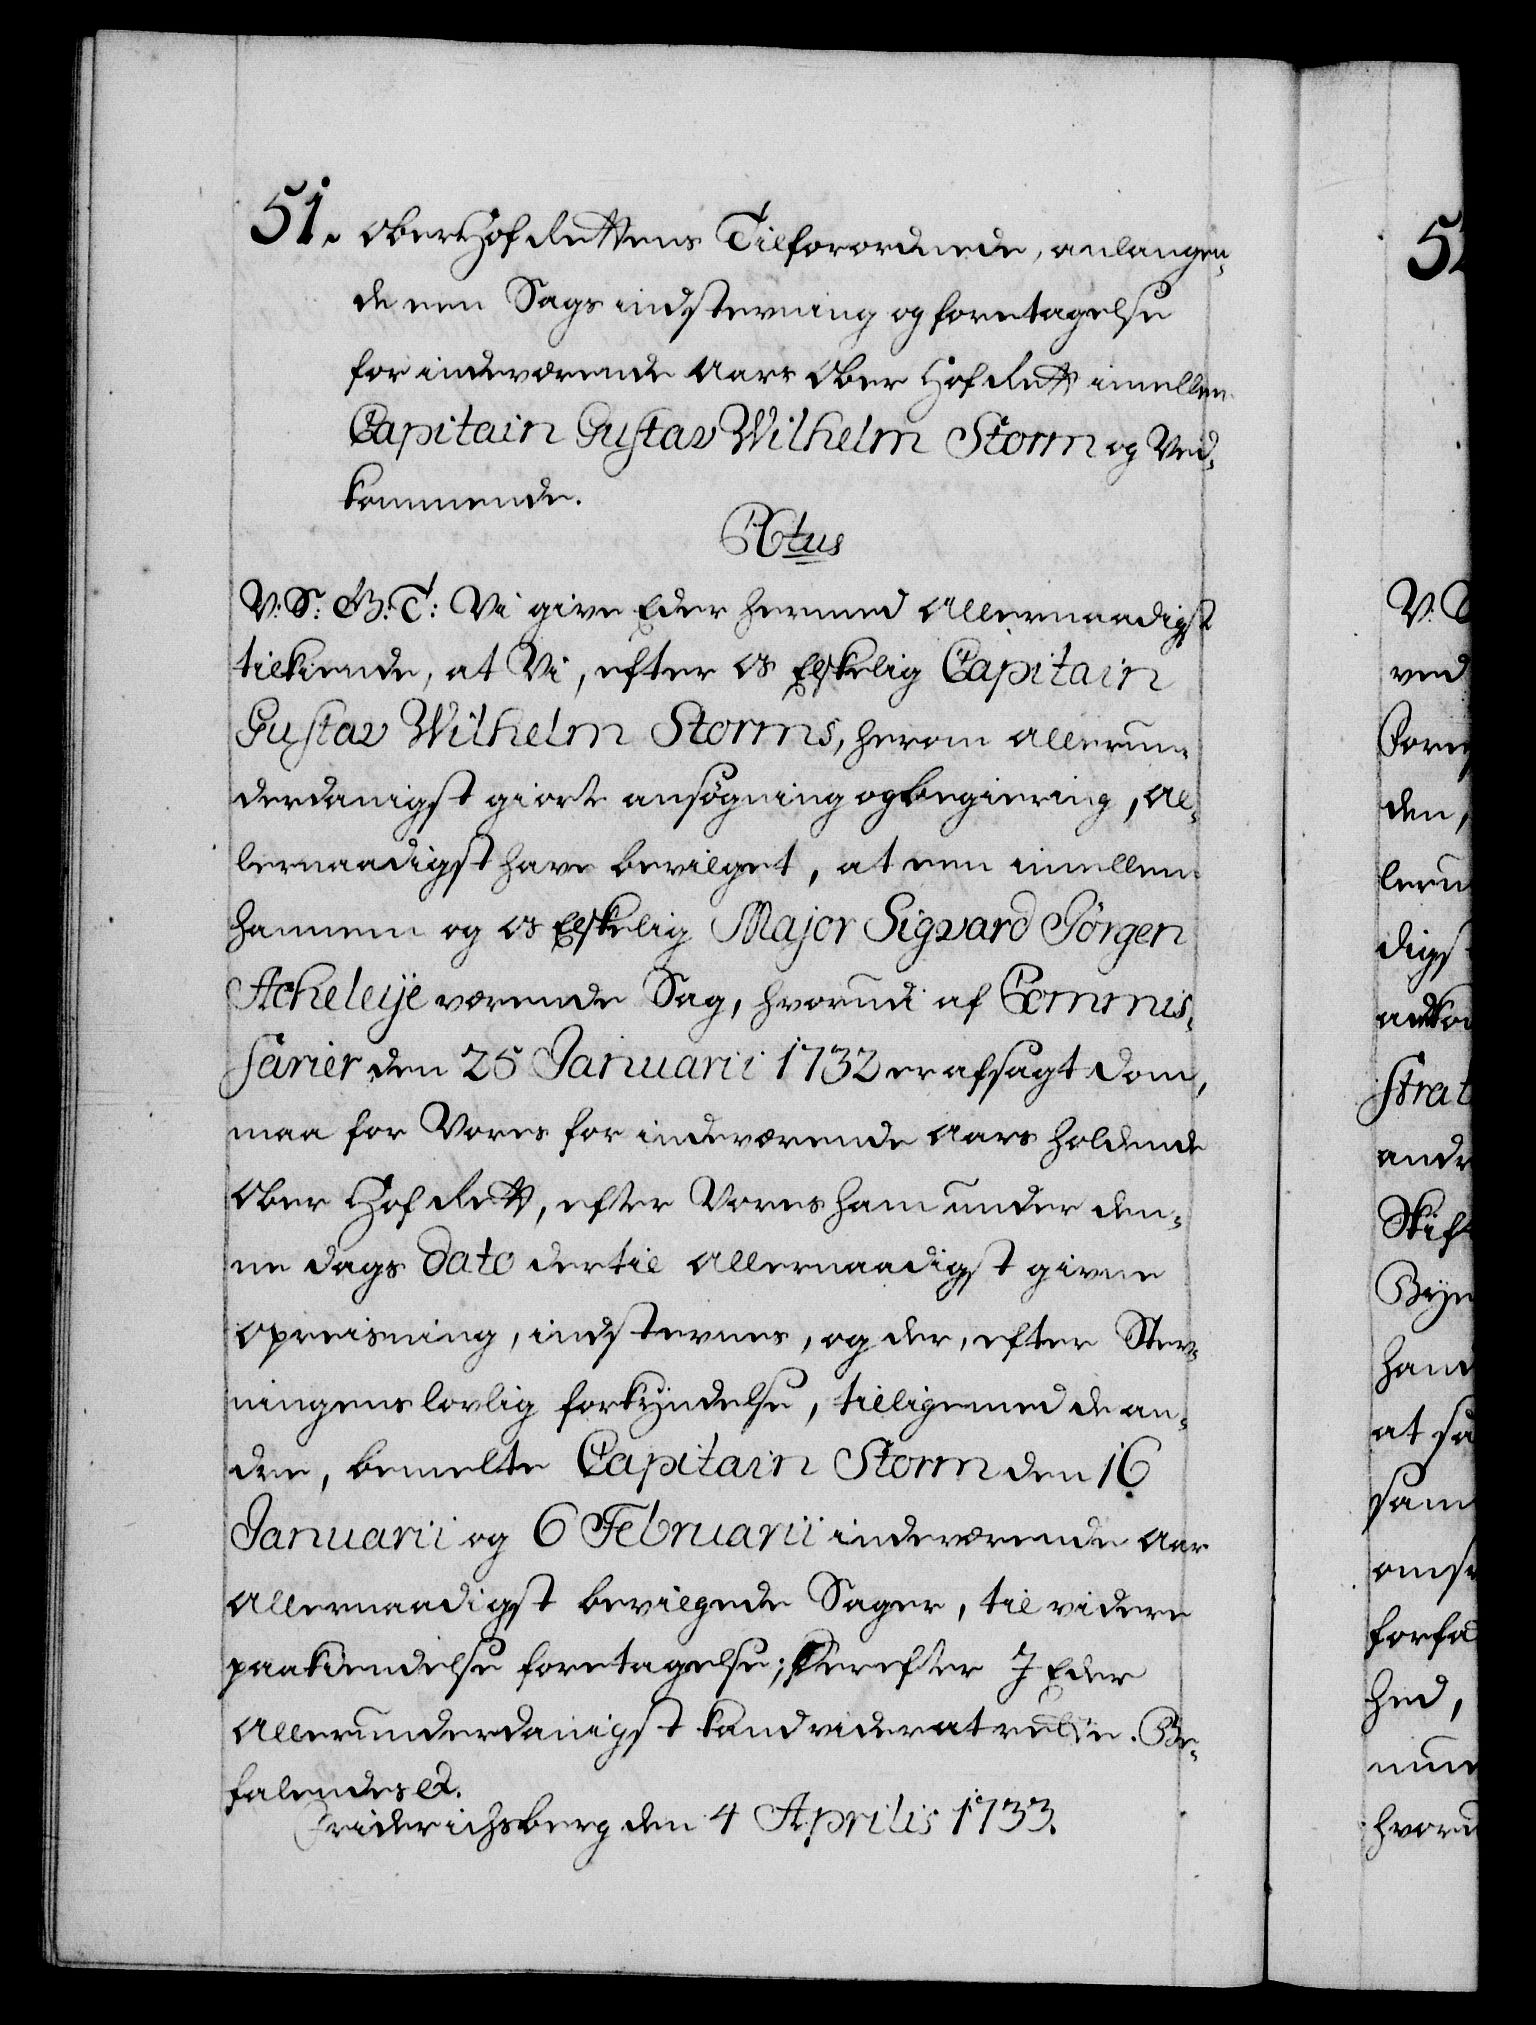 51. OberHofRettens Tilforordnede, anlangen-
de een Sags indstevning og foretagelse
for indeværende Aars Ober Hof Rett imellem
Capitain Gustav Wilhelm Storm og Ved-
kommende.
V: S: G: T: Vi give Eder hermed Allernaadigst
tilkiende, at Vi, efter os Elskelig Capitain
Gustav Wilhelm Storms, herom allerun-
derdanigst giorte ansøgning og begiering, Al-
lernaadigst have bevilget, at een imellem
hannem og os Elskelig Major Sigvard Jörgen
Acheleije værende Sag, hvorudi af Commis-
sarier den 25 Januarii 1732 er afsagt Dom,
maa for Vores for indeværende Aars holdende
Ober Hof Rett, efter Vores ham under den-
ne dags Dato dertil Allernaadigst givne
opreisning, indstevnes, og der, efter Stev-
ningens lovlig forkyndelse, tilligemed de an-
dre, bemelte Capitain Storm den 16
Januarii og 6 Februarii indeværende Aar
Allernaadigst bevilgede Sager, til videre
paakiendelse foretagelse; Derefter I Eder
Allerunderdanigst kand vider at rette. Be-
falendes etc.
Friderichsberg den 4 Aprilis 1733.
52
V. S
ved
den,
leru
digst
Strat
andr
Stift
Byen
hand
at sa
sam
forfa
hed,
hvoru